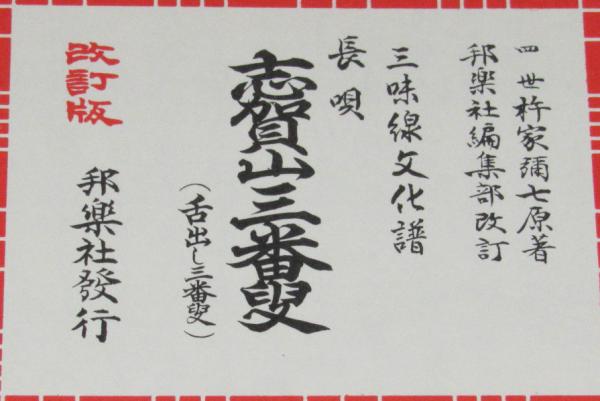 四世杵家彌七原著
邦樂社編集部改訂
三味線文化譜
長唄
志賀山三番叟
(舌出し三番叟)
改訂版
邦樂社發行